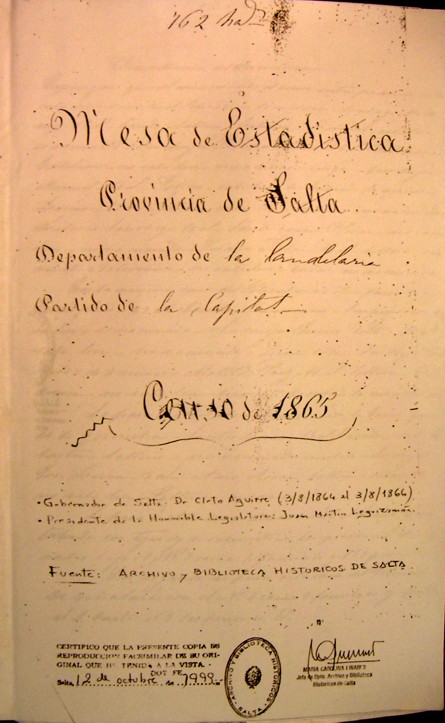 162 hab.
Mesa de Estadistica
Provincia de Salta
Departamento de la Candelaria
Partido de la Capital
Censo de 1865
- Gobernador de Salta: Dr Cleto Aguirre (3/8/1864 al 3/8/1866)
- Presidente de la Honorable Legislatura: Juan Martín Leguizamón.
Fuente: ARCHIVO y BIBLIOTECA HISTORICOS DE SALTA
CERTIFICO QUE LA PRESENTE COPIA ES
REPRODUCCION FACSIMILAR DE SU ORI-
GINAL QUE HE TENIDO A LA VISTA.
DOY FE
Salta, 12 de octubre de 1999
ARCHIVO Y BIBLIOTECA HISTORICOS
SALTA
MARIA CAROLINA LINARES
Jefa de Dpto. Archivo y Biblioteca
Históricos de Salta